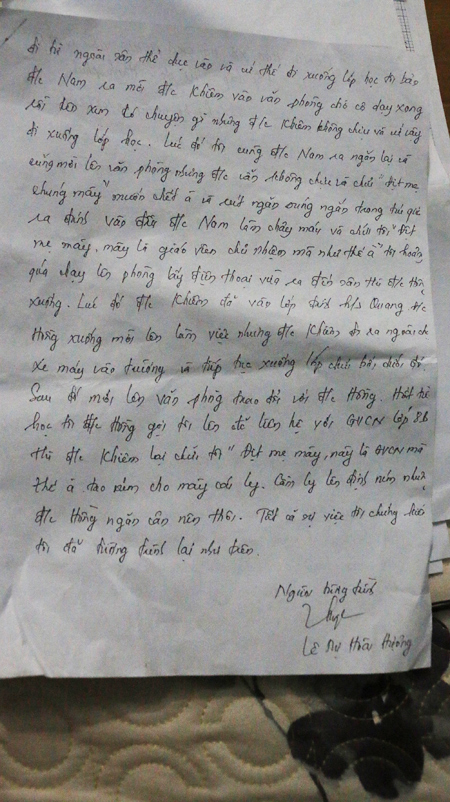 đi từ ngoài sân thể dục vào và vì thế đi xuống lớp học tôi bảo
đ/c Nam ra mời đ/c Khiêm vào văn phòng chờ cô dạy xong
rồi lên xem có chuyện gì nhưng đ/c Khiêm không chịu và vì vậy
đi xuống lớp học. Lúc đó tôi cùng đ/c Nam ra ngăn lại và
cũng mời lên văn phòng nhưng đ/c vẫn không chịu và chửi "Địt mẹ
chúng mày" muốn chết à và rút ngăn súng ngắn trong túi
ra đánh vào đầu đ/c Nam làm chảy máu và chửi tôi "Địt
mẹ mày, mày là giáo viên chủ nhiệm mà như thế à" tôi hoảng
quá chạy lên phòng lấy điện thoại vừa ra đến sân thì đ/c Hồng
xuống. Lúc đó đ/c Khiêm đã vào lớp đánh h/s Quang đ/c
Hồng xuống mời lên làm việc nhưng đ/c Khiêm đi ra ngoài
xe máy vào trường và tiếp tục xuống lớp chửi bới
Sau đó mới lên văn phòng trao đổi với đ/c Hồng. Hết tiết
học tôi đ/c Hồng gọi tôi lên để liên hệ với GVCN lớp 8B
thì đ/c Khiêm lại chửi tôi "Địt mẹ mày, mày là GVCN mà
thế à tao ném cho mày cốc ly. Cầm ly lên định ném nhưng
đ/c Hồng ngăn cản nên thôi. Tất cả sự việc tôi chứng kiến
tôi đã tường trình lại như trên.
Người tường trình
Lê Thị Hoài Hương